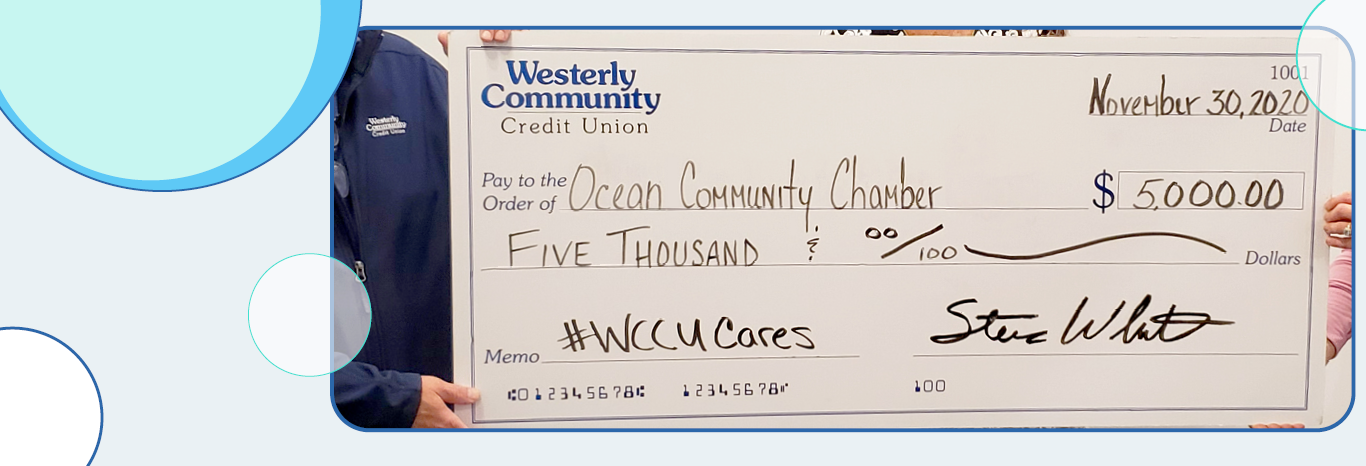 Westerly
Community
Credit Union
Westerly
Community
Credit Union
1001
November 30, 2020
Date
Pay to the
Order of Ocean Community Chamber $ 5,000.00
Five Thousand & 00/100 Dollars
Memo #WCCU Cares
⑆012345678⑆ 12345678⑈ 100